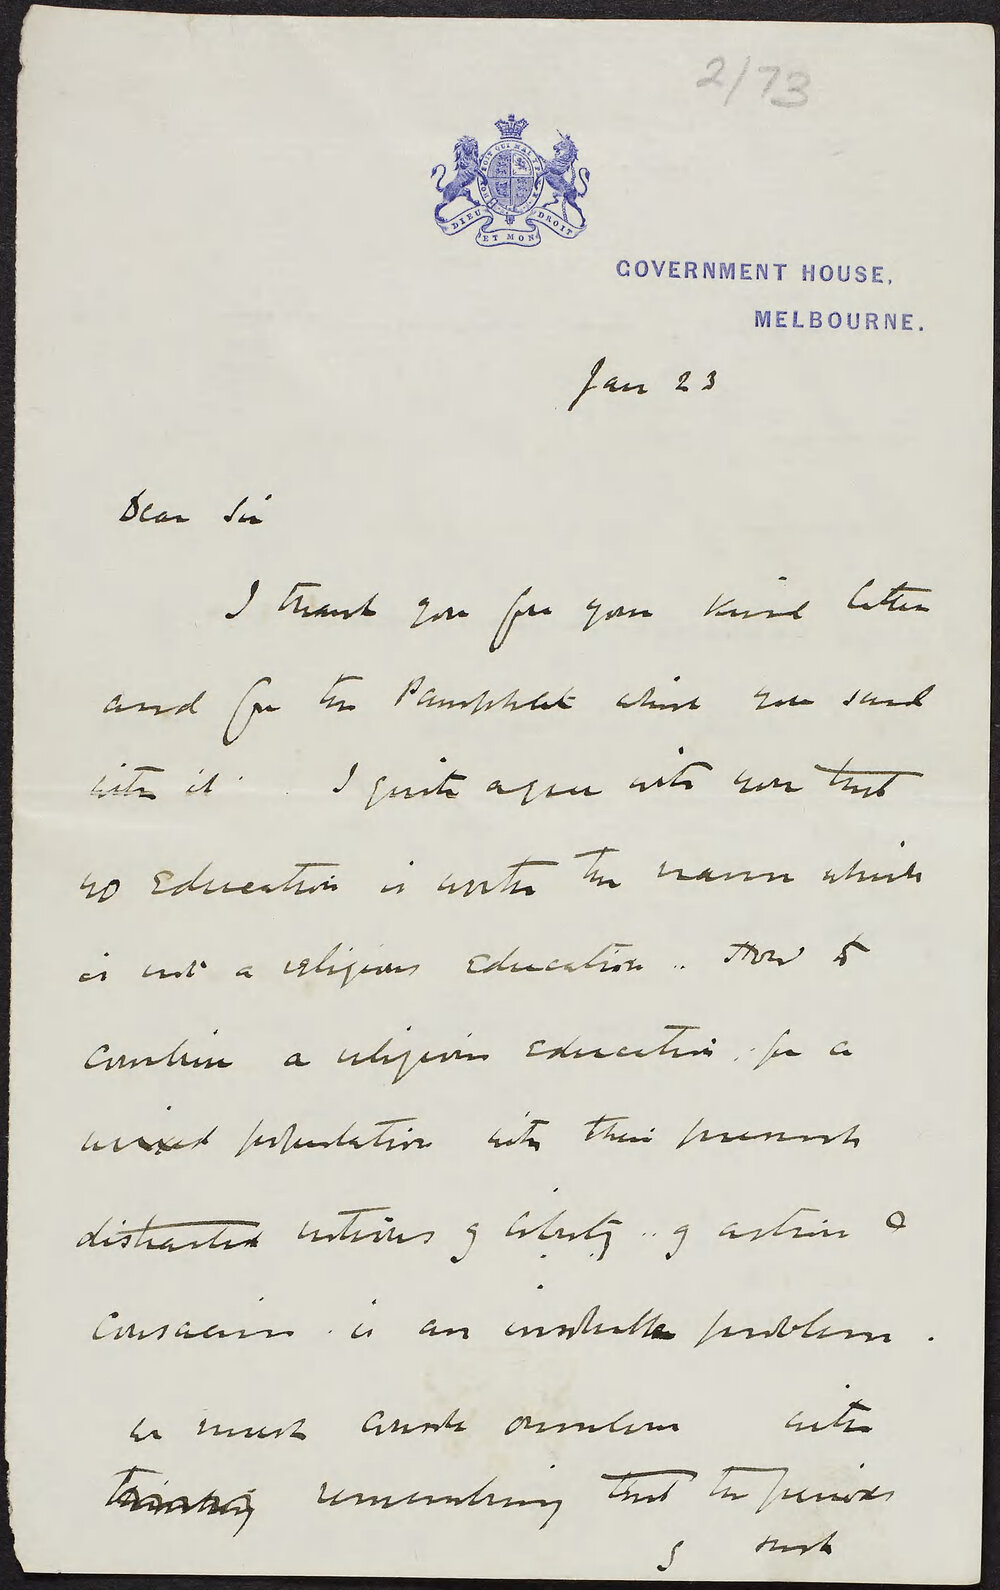 2/73
HONI SOIT QUI MAL Y PENSE
DIEU ET MON DROIT
GOVERNMENT HOUSE,
MELBOURNE.
Jan 23
Dear Sir
I thank you for your kind letter
and for the Pamphlet which you send
with it. I quite agree with you that
no Education is worth the name which
is not a religious Education .. How to
combine a religious Education for a
mixed population with their present
distracted notions of liberty .. of action &
conscience is an insoluble problem .
we must console ourselves with
thinking remembering that the period
of such